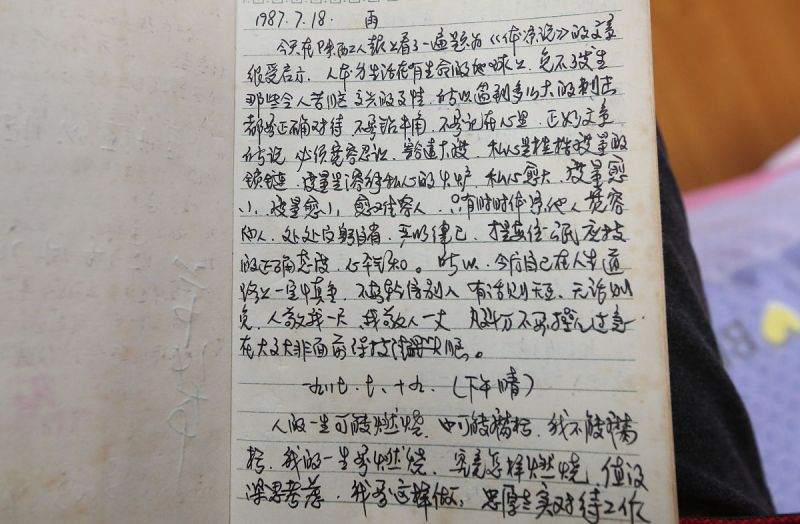 1987.7.18. 雨
今天在陕西工人报上看了一遍题为《体谅说》的文章
很受启示，人本身生活在有生命的地球上，免不了发生
那些令人苦恼，高兴的事情，所以遇到多么大的刺击
都要正确对待，不要钻牛角，不要记在心里，正如文章
所说，必须宽容忍让，豁达大度，私心是捆绑度量的
锁链，度量是溶行私心的火炉，私心愈大，度量愈
小，度量愈小，愈难容人，只有时时体谅他人，宽容
他人，处处反躬自省，严以律己，才是公民应该
的正确态度，心平气和。所以，今后自己在人生道
路上一定慎重，不要轻信别人，有话则天至，无话则
免，人敬我一尺，我敬人一丈，凡事千万不要操之过急
在大是大非面前保持清醒头脑。
一九八七.七.十九.（下午晴）
人的一生可能燃烧，也可能腐朽，我不能腐
朽，我的一生要燃烧，究竟怎样燃烧，值得
深思考虑，我要这样做：忠厚老实对待工作